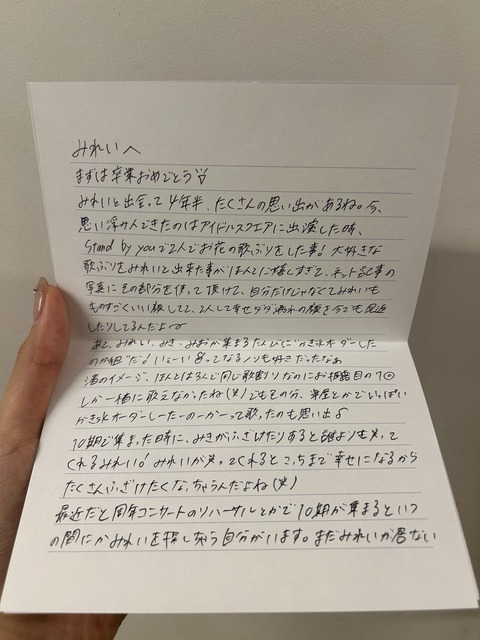 みれいへ
まずは卒業おめでとう
みれいと出会って4年半、たくさんの思い出があるね。今、
思い浮かんできたのはアイドルスクエアに出演した時、
Stand by youで2人でお花の歌ぶりをした事! 大好きな
歌ぶりをみれいと出来た事がほんとに嬉しすぎて、ネット記事の
写真にその部分を使って頂けて、自分だけじゃなくてみれいも
ものすごくいい顔してて、2人して幸せダダ漏れの顔を今でも見返
したりしてるんだよ〜
あと、みれい、みき、みおが集まるたんびにかき氷オーダーした
のか!だ! いぇーい!ってなるノリも好きだったなぁ
渚のイメージ、ほんとはるんで同じ歌割りなのにお披露目の1回
しか一緒に歌えなかったね(笑)でもその分、楽屋とかでいっぱい
かき氷オーダーしたーのーかーって歌ったのも思い出♪
10期で集まった時に、みきがふざけたりすると誰よりも笑って
くれるみれい! みれいが笑ってくれるとこっちまで幸せになるから
たくさんふざけたくなっちゃうんだよね(笑)
最近だと周年コンサートのリハーサルとかで10期が集まるといつ
の間にかみれいを探しちゃう自分がいます。まだみれいが居ない